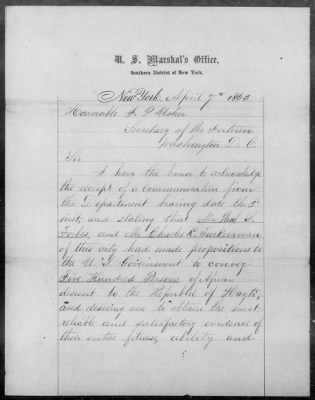 U. S. Marshal's Office,
Southern District of New York,
New York, April 7th 1863
Honorable J. P. Usher
Secretary of the Interior
Washington D. C.
Sir
I have the honor to acknowledge
the receipt of a communication from
the Department bearing date the 3d
inst, and stating that Mr Paul S.
Forbes, and Mr Charles K. Tuckerman
of this city had made propositions to
the U. S. Government to convey
Five Hundred Persons of African
descent to the Republic of Hayti,
and desiring me to obtain the most
reliable and satisfactory evidence of
their entire fitness, ability and